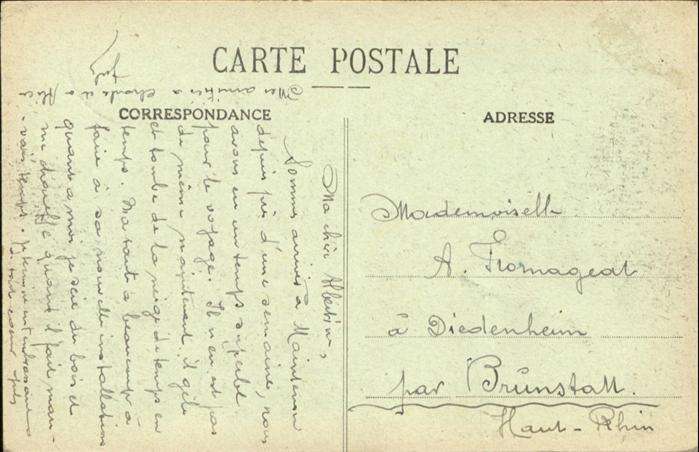 CARTE POSTALE
CORRESPONDANCE
ADRESSE
Ma chère Albertine,
Sommes arrivés à Maintenon
depuis près d'une semaine, nous
avons eu un temps superbe
pour le voyage. Il n'en est pas
de même maintenant il gèle
et tombe de la neige de temps en
temps. Ma tante a beaucoup à
faire à sa nouvelle installation
quant à moi je scie du bois et
me chauffe quand il fait mau-
vais temps. Je termine en t'embrassant
de tout cœur
Mes amitiés à
Mademoiselle
A. Fromageat
à Diedenheim
par Brunstatt.
Haut-Rhin